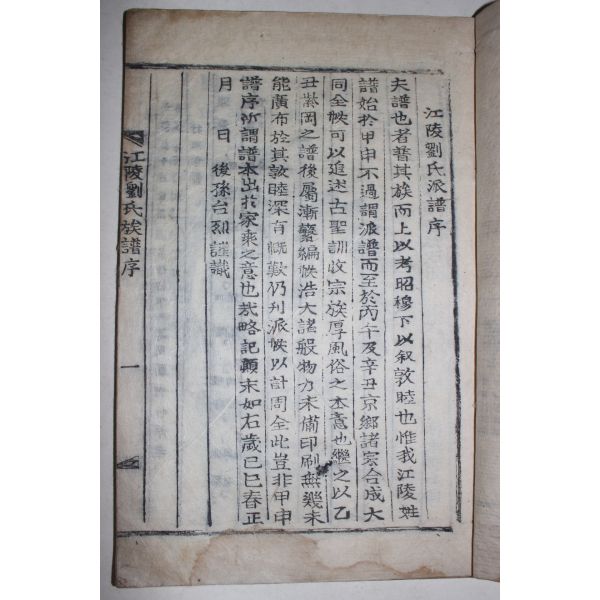 江陵劉氏派譜序
夫譜也者普其族而上以考昭穆下以叙敦睦也惟我江陵姓
譜始於甲申不過謂派譜而至於丙午及辛丑京鄉諸宗合成大
同全帙可以追述古聖訓收宗族厚風俗之本意也繼之以乙
丑紫岡之譜後屬漸繁編帙浩大諸般物力未備印刷無幾未
能廣布於其敦睦深有慨歎仍刊派帙以計周全此豈非甲申
譜序所謂譜本出於家乘之意也哉略記顚末如右歲己巳春正
月 日 後孫台烈謹識
江陵劉氏族譜序
一